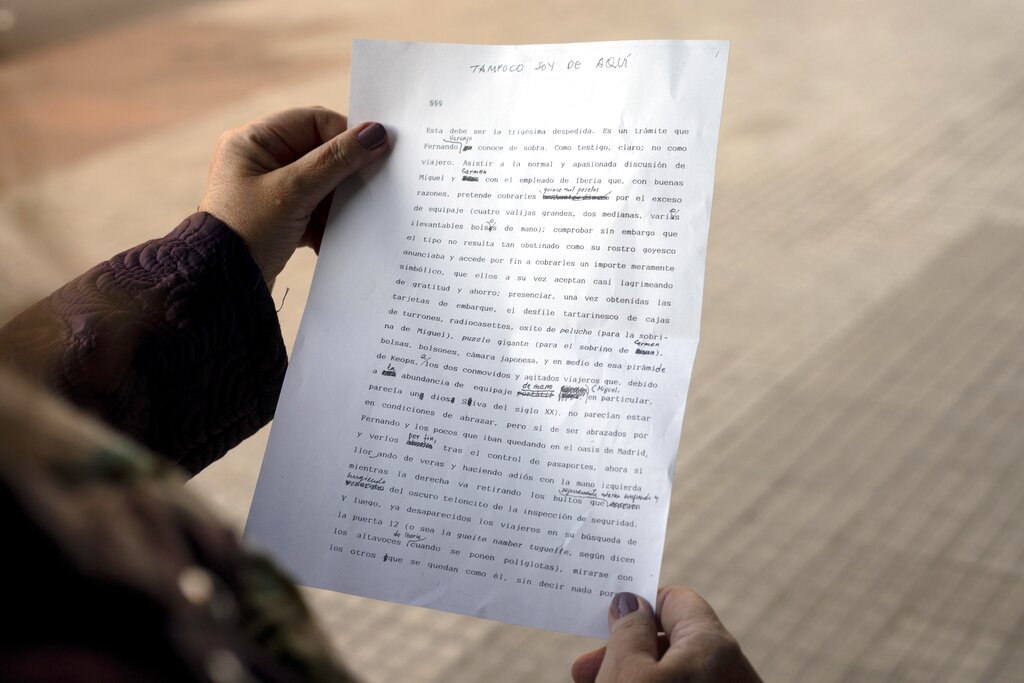 1
TAMPOCO SOY DE AQUÍ
§§§
Esta debe ser la trigésima despedida. Es un trámite que
Naranjo
Fernando conoce de sobra. Como testigo, claro; no como
viajero. Asistir a la normal y apasionada discusión de
Carmen
Miguel y con el empleado de Iberia que, con buenas
quince mil pesetas
razones, pretende cobrarles por el exceso
de equipaje (cuatro valijas grandes, dos medianas, varios
ilevantables bolsos de mano); comprobar sin embargo que
el tipo no resulta tan obstinado como su rostro goyesco
anunciaba y accede por fin a cobrarles un importe meramente
simbólico, que ellos a su vez aceptan casi lagrimeando
de gratitud y ahorro; presenciar, una vez obtenidas las
tarjetas de embarque, el desfile tartarinesco de cajas
de turrones, radiocasettes, osito de peluche (para la sobri-
na de Miguel), puzzle gigante (para el sobrino de
Carmen
bolsas, bolsones, cámara japonesa, y en medio de esa pirámide
de Keops, a los dos conmovidos y agitados viajeros que, debido
la
a abundancia de equipaje de mano (Miguel,
en particular,
parecía un dios Siva del siglo XX), no parecían estar
en condiciones de abrazar, pero sí de ser abrazados por
Fernando y los pocos que iban quedando en el oasis de Madrid,
por fin,
y verlos tras el control de pasaportes, ahora sí
llorando de veras y haciendo adiós con la mano izquierda
mientras la derecha va retirando los bultos que
surgiendo
del oscuro teloncito de la inspección de seguridad.
Y luego, ya desaparecidos los viajeros en su búsqueda de
la puerta 12 (o sea la gueite namber tugueffe, según dicen
de Iberia
los altavoces cuando se ponen políglotas), mirarse con
los otros que se quedan como él, sin decir nada